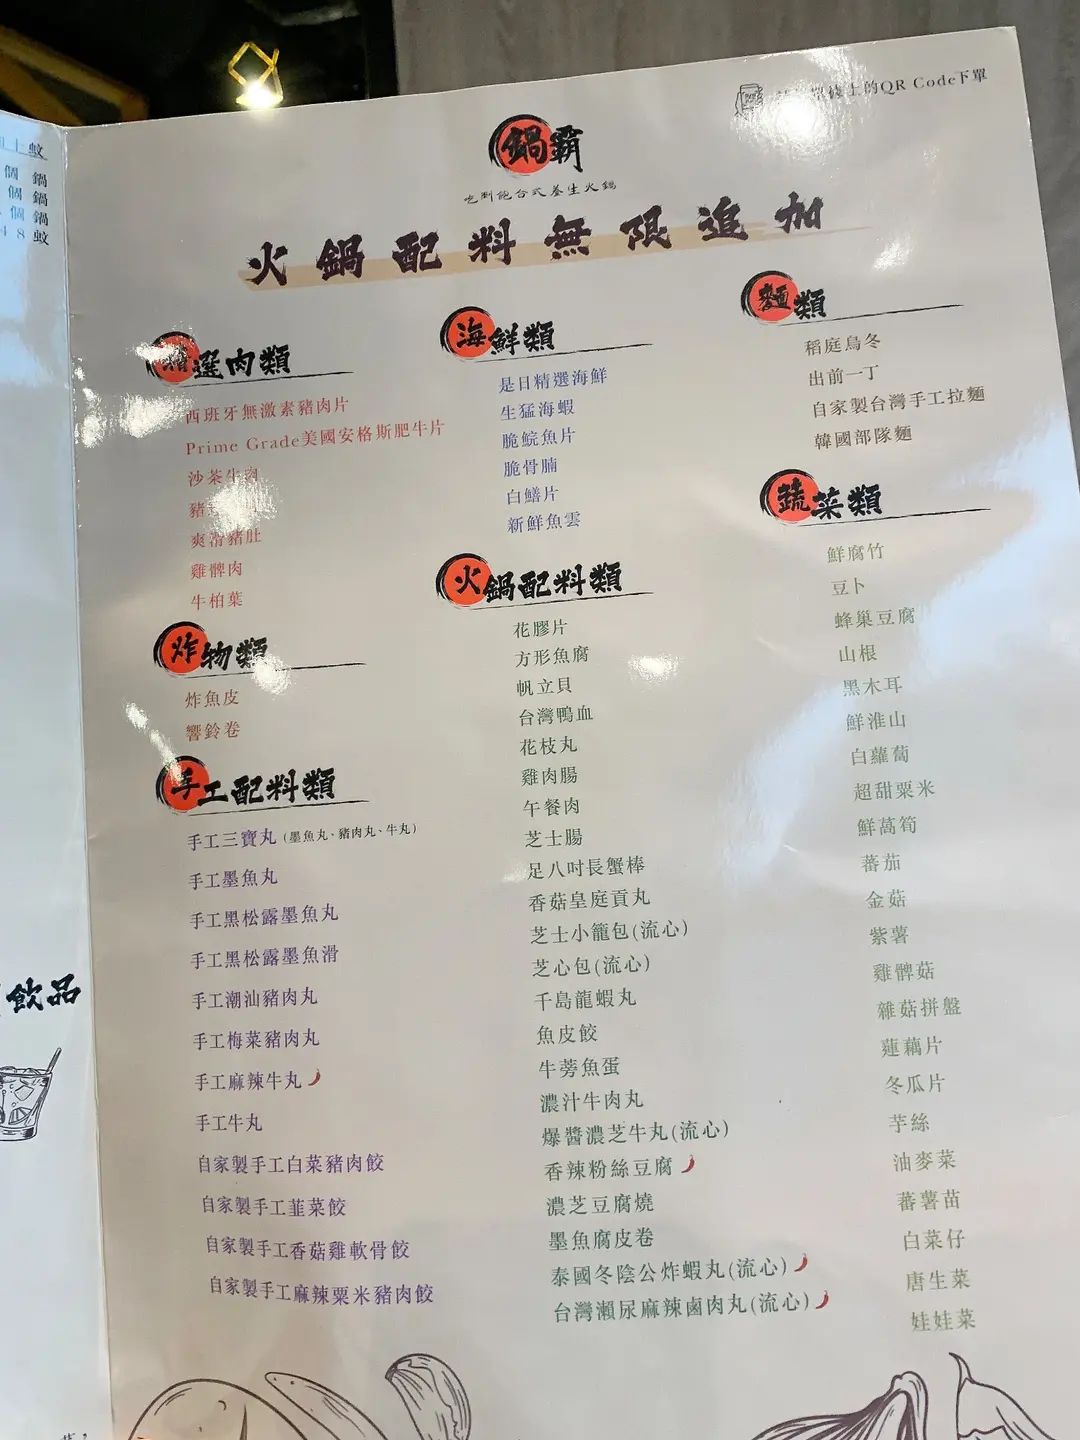 蚊
個 鍋
個 鍋
個 鍋
4 8 蚊
飲品
上的QR Code下單
鍋霸
吃到飽台式養生火鍋
火鍋配料無限追加
精選肉類
西班牙無激素豬肉片
Prime Grade美國安格斯肥牛片
沙茶牛肉
豬
爽滑豬肚
雞髀肉
牛柏葉
炸物類
炸魚皮
響鈴卷
手工配料類
手工三寶丸(墨魚丸、豬肉丸、牛丸)
手工墨魚丸
手工黑松露墨魚丸
手工黑松露墨魚滑
手工潮汕豬肉丸
手工梅菜豬肉丸
手工麻辣牛丸
手工牛丸
自家製手工白菜豬肉餃
自家製手工韮菜餃
自家製手工香菇雞軟骨餃
自家製手工麻辣粟米豬肉餃
海鮮類
是日精選海鮮
生猛海蝦
脆鯇魚片
脆骨腩
白鱔片
新鮮魚雲
火鍋配料類
花膠片
方形魚腐
帆立貝
台灣鴨血
花枝丸
雞肉腸
午餐肉
芝士腸
足八吋長蟹棒
香菇皇庭貢丸
芝士小籠包(流心)
芝心包(流心)
千島龍蝦丸
魚皮餃
牛蒡魚蛋
濃汁牛肉丸
爆醬濃芝牛丸(流心)
香辣粉絲豆腐
濃芝豆腐燒
墨魚腐皮卷
泰國冬陰公炸蝦丸(流心)
台灣瀨尿麻辣鹵肉丸(流心)
麵類
稻庭烏冬
出前一丁
自家製台灣手工拉麵
韓國部隊麵
蔬菜類
鮮腐竹
豆卜
蜂巢豆腐
山根
黑木耳
鮮淮山
白蘿蔔
超甜粟米
鮮萵筍
蕃茄
金菇
紫薯
雞髀菇
雜菇拼盤
蓮藕片
冬瓜片
芋絲
油麥菜
蕃薯苗
白菜仔
唐生菜
娃娃菜